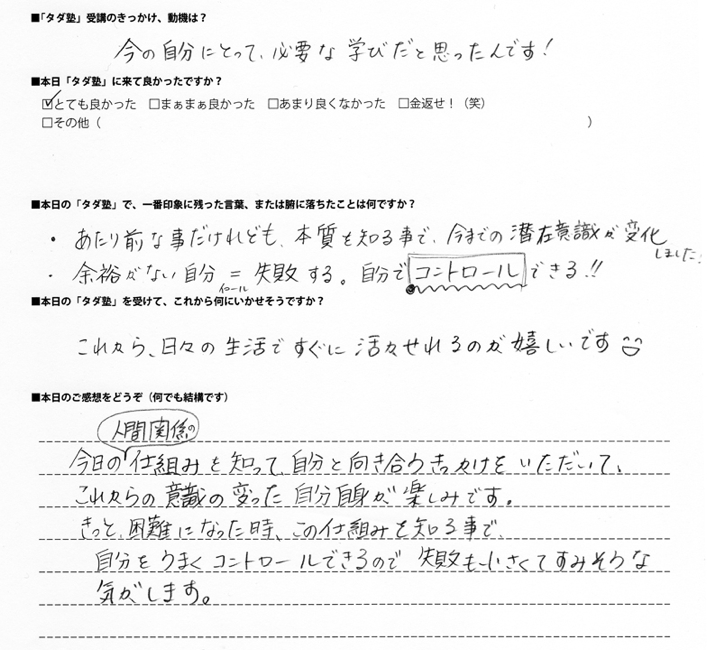 ■「タダ塾」受講のきっかけ、動機は？
今の自分にとって、必要な学びだと思ったんです！
■本日「タダ塾」に来て良かったですか？
☑とても良かった □まぁまぁ良かった □あまり良くなかった □金返せ！（笑）
□その他（ ）
■本日の「タダ塾」で、一番印象に残った言葉、または腑に落ちたことは何ですか？
・あたり前な事だけれども、本質を知る事で、今までの潜在意識が変化しました！
・余裕がない自分＝失敗する。自分でコントロールできる!!
イコール
■本日の「タダ塾」を受けて、これから何にいかせそうですか？
これから、日々の生活ですぐに活かせれるのが嬉しいです
■本日のご感想をどうぞ（何でも結構です）
人間関係の
今日の仕組みを知って、自分と向き合うきっかけをいただいて、
これからの意識の変った自分自身が楽しみです。
きっと、困難になった時、この仕組みを知る事で、
自分をうまくコントロールできるので失敗も小さくてすみそうな
気がします。